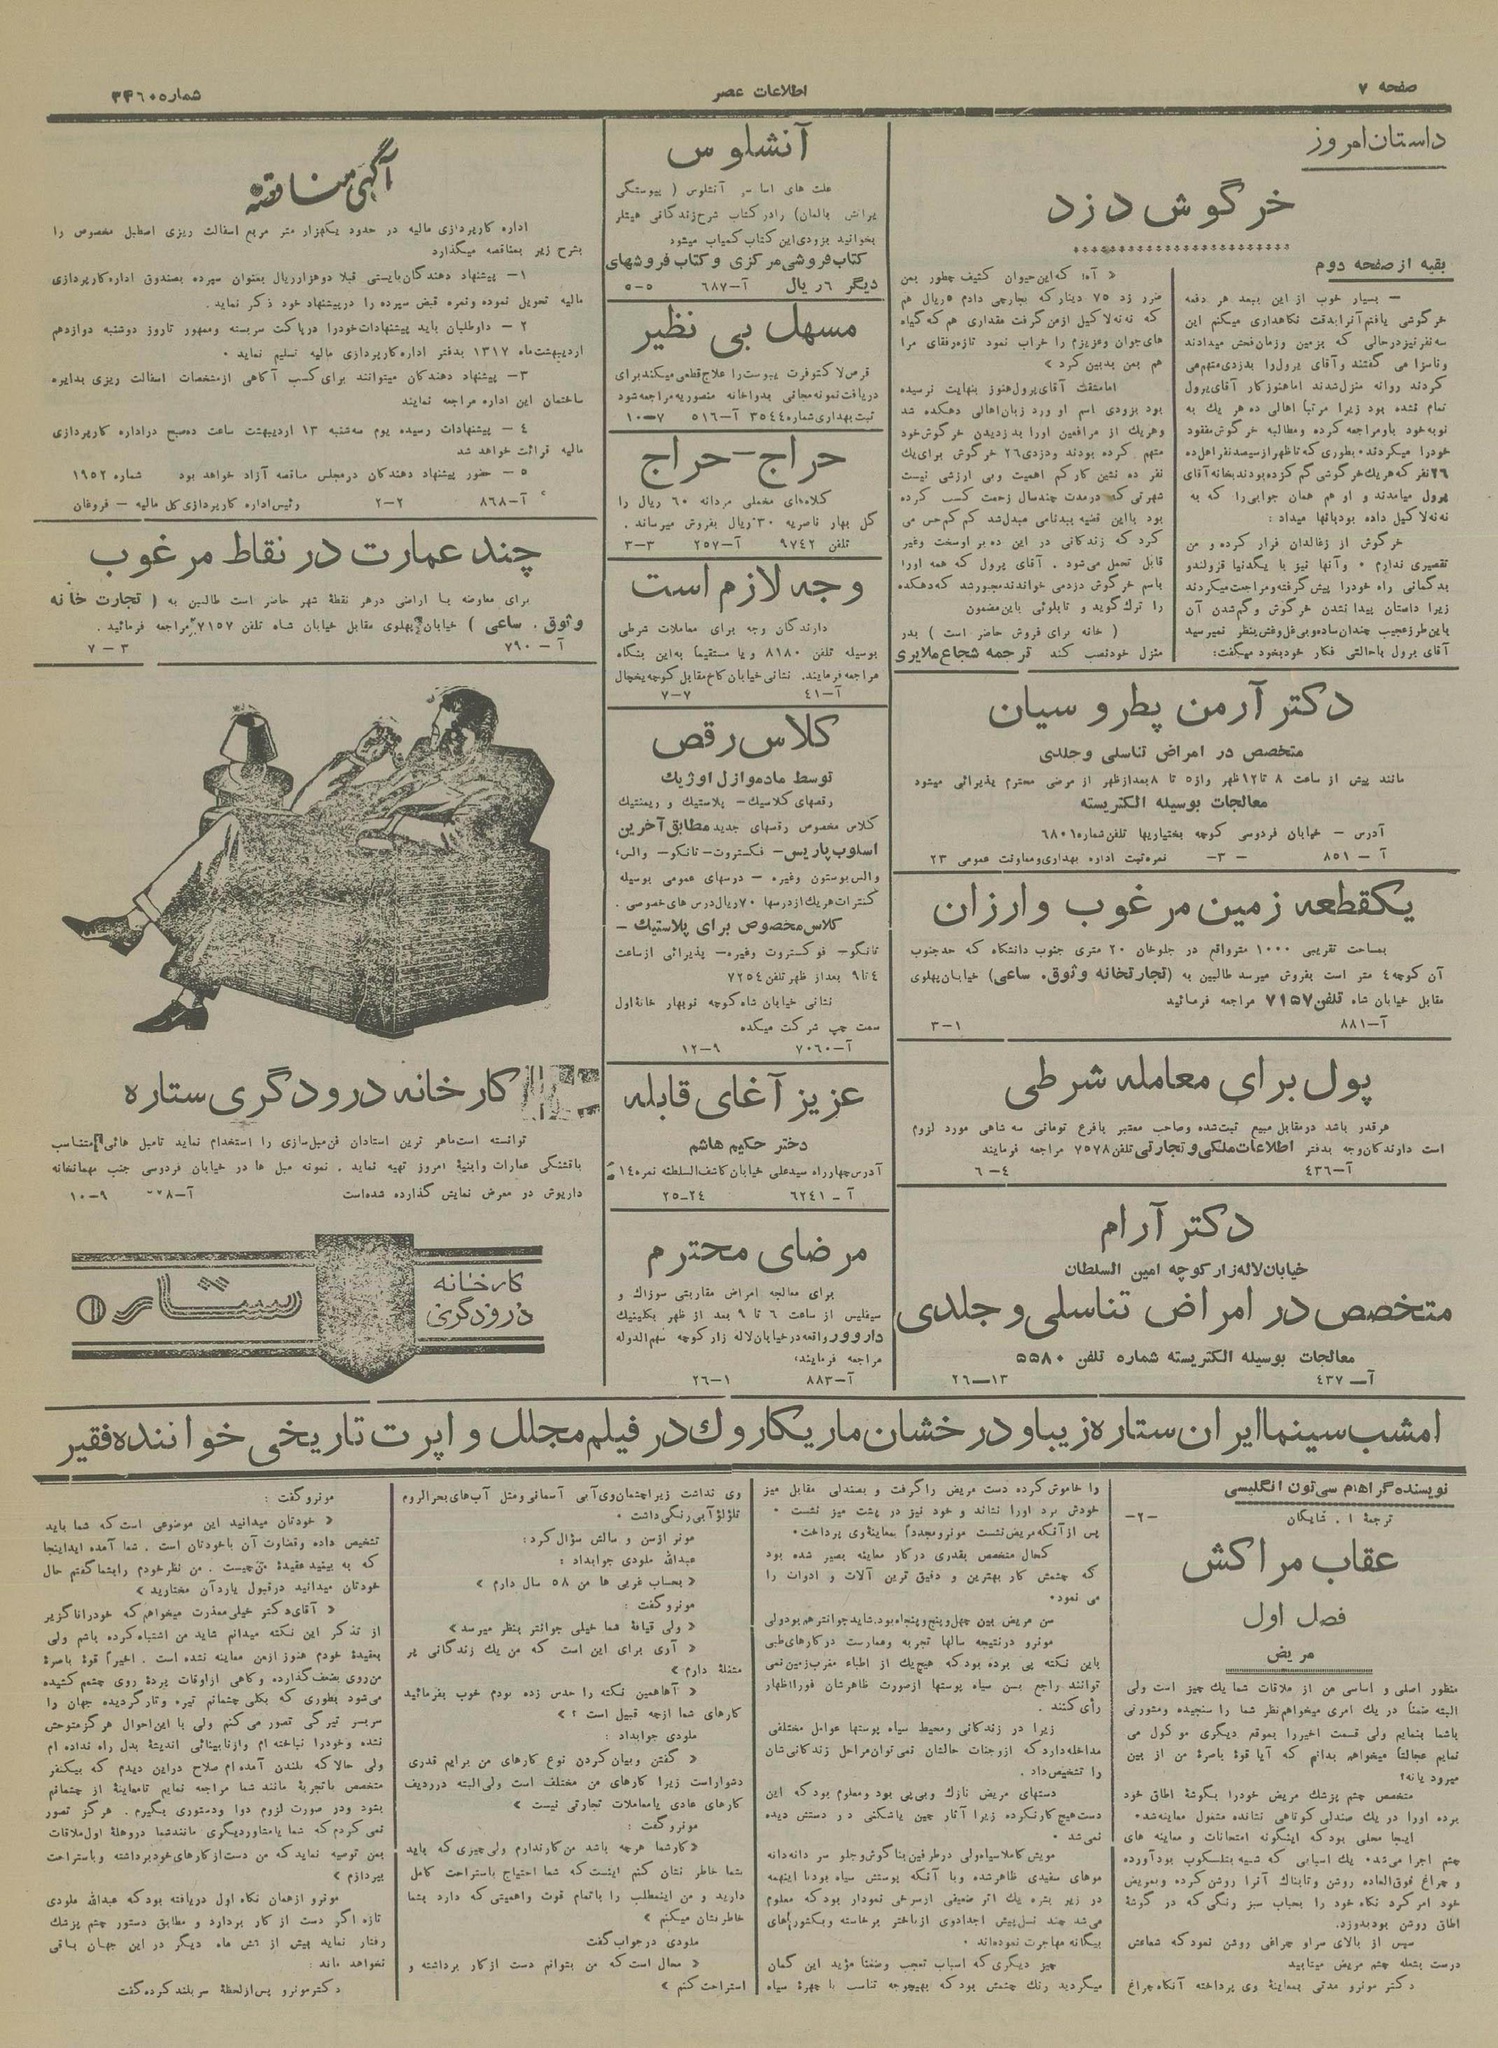 صفحه ۷
اطلاعات عصر
داستان امروز
خرگوش دزد
بقیه از صفحه دوم
— بسیار خوب از این ببعد هر دفعه
خرگوشی یافتم آنرا بدقت نگاهداری میکنم این
سه نفر نیز درحالی که بزمین وزمان فحش میدادند
وناسزا می گفتند وآقای پرول را بدزدی متهم می
کردند روانه منزل شدند اما هنوز کار آقای پرول
تمام نشده بود زیرا مرتباً اهالی ده هر یك به
نوبه خود باو مراجعه کرده ومطالبه خرگوش مفقود
خودرا میکردند، بطوری که تا ظهر از سیصد نفر اهل ده
۲۶ نفر که هریك خرگوشی گم کرده بودند بخانه آقای
پرول میامدند و او هم همان جوابی را که به
ننه لاکیل داده بود بآنها میداد:
خرگوش از زغالدان فرار کرده و من
تقصیری ندارم ، وآنها نیز با یکدنیا قزولندو
بدگمانی راه خودرا پیش گرفته ومراجعت میکردند
زیرا داستان پیدا نشدن خرگوش وگم شدن آن
باین طرز عجیب چندان ساده وبی غل وغش بنظر نمیرسید
آقای پرول باحالتی فکار خودبخود میگفت:
« آه! که این حیوان کثیف چطور بمن
ضرر زد ۷۵ دینار که بجارچی دادم ۵ ریال هم
که ننه لاکیل ازمن گرفت مقداری هم که گیاه
های جوان وعزیزم را خراب نمود تازه رفقای مرا
هم بمن بدبین کرد »
اما مشقت آقای پرول هنوز بنهایت نرسیده
بود بزودی اسم او ورد زبان اهالی دهکده شد
وهریك از مرافعین اورا بدزدیدن خرگوش خود
متهم کرده بودند ودزدی ۲۶ خرگوش برای یك
نفر ده نشین کار کم اهمیت وبی ارزشی نیست
شهرتی که درمدت چند سال زحمت کسب کرده
بود بااین قضیه ببدنامی مبدل شد کم کم حس می
کرد که زندگانی در این ده بر او سخت وغیر
قابل تحمل می شود . آقای پرول که همه اورا
باسم خرگوش دزدمی خواندند مجبور شد که دهکده
را ترك گوید و تابلوئی باین مضمون
( خانه برای فروش حاضر است ) بدر
منزل خود نصب کند ترجمه شجاع ملایری
دکتر آرمن پطروسیان
متخصص در امراض تناسلی وجلدی
مانند پیش از ساعت ۸ تا ۱۲ ظهر واز ۵ تا ۸ بعدازظهر از مرضی محترم پذیرائی میشود
معالجات بوسیله الکتریسته
آدرس — خیابان فردوسی کوچه بختیاریها تلفن شماره ۶۸۰۱
آ — ۸۵۱ — ۳— نمره ثبت اداره بهداری ومعاونت عمومی ۲۳
یکقطعه زمین مرغوب وارزان
بمساحت تقریبی ۱۰۰۰ متر واقع در جلوخان ۲۰ متری جنوب دانشگاه که حدجنوب
آن کوچه ۴ متر است بفروش میرسد طالبین به (تجارتخانه وثوق. ساعی) خیابان پهلوی
مقابل خیابان شاه تلفن ۷۱۵۷ مراجعه فرمائید
آ—۸۸۱ ۱—۳
پول برای معامله شرطی
هرقدر باشد درمقابل مبیع ثبت شده وصاحب معتبر بافرع تومانی سه شاهی مورد لزوم
است دارندگان وجه بدفتر اطلاعات ملکی وتجارتی تلفن ۷۵۷۸ مراجعه فرمایند
آ—۴۳۶ ۴—۶
دکتر آرام
خیابان لاله زار کوچه امین السلطان
متخصص در امراض تناسلی وجلدی
معالجات بوسیله الکتریسته شماره تلفن ۵۵۸۰
آ— ۴۳۷ ۱۳—۲۶
آنشلوس
علت های اساسی آنشلوس ( پیوستگی
بخوانید بزودی این کتاب کمیاب میشود
کتاب فروشی مرکزی وکتاب فروشهای
دیگر ۶ ریال آ—۶۸۷ ۵—۵
مسهل بی نظیر
قرص لاکتوفرت یبوست را علاج قطعی میکند برای
دریافت نمونه مجانی بدواخانه منصوریه مراجعه شود
ثبت بهداری شماره ۳۵۴۴ آ—۵۱۶ ۷—۱۰
حراج—حراج
کلاه‌های مخملی مردانه ۶۰ ریال را
گل بهار ناصریه ۳۰ ریال بفروش میرساند .
تلفن ۹۷۴۲ آ—۲۵۷ ۳—۳
وجه لازم است
دارندگان وجه برای معاملات شرطی
بوسیله تلفن ۸۱۸۰ ویا مستقیماً به این بنگاه
مراجعه فرمایند. نشانی خیابان کاخ مقابل کوچه یخچال
آ—۴۱ ۷—۷
کلاس رقص
توسط مادموازل اوژیك
رقصهای کلاسیك— پلاستیك و ریتمیك
کلاس مخصوص رقصهای جدید مطابق آخرین
اسلوب پاریس— فکستروت— تانگو— والس،
والس بوستون وغیره — درسهای عمومی بوسیله
کنترات هریك از درسها ۷۰ ریال درس های خصوصی .
کلاس مخصوص برای پلاستیك —
تانگو— فوکستروت وغیره— پذیرائی ازساعت
۴ تا ۹ بعداز ظهر تلفن ۷۲۵۴
نشانی خیابان شاه کوچه نوبهار خانهٔ اول
سمت چپ شرکت میکده
آ—۷۰۶۰ ۹—۱۲
عزیز آغای قابله
دختر حکیم هاشم
آدرس چهارراه سیدعلی خیابان کاشف السلطنه نمره ۱۴
آ — ۶۲۴۱ ۲۴—۲۵
مرضای محترم
برای معالجه امراض مقاربتی سوزاك و
سیفلیس از ساعت ۶ تا ۹ بعد از ظهر بکلینیك
داروور واقعه درخیابان لاله زار کوچه سهم الدوله
مراجعه فرمایند،
آ—۸۸۳ ۱—۲۶
آگهی مناقصه
اداره کارپردازی مالیه در حدود یکهزار متر مربع اسفالت ریزی اصطبل مخصوص را
بشرح زیر بمناقصه میگذارد
۱— پیشنهاد دهندگان بایستی قبلا دوهزارریال بعنوان سپرده بصندوق اداره کارپردازی
مالیه تحویل نموده ونمره قبض سپرده را در پیشنهاد خود ذکر نماید.
۲ — داوطلبان باید پیشنهادات خودرا درپاکت سربسته وممهور تاروز دوشنبه دوازدهم
اردیبهشت ماه ۱۳۱۷ بدفتر اداره کارپردازی مالیه تسلیم نماید .
۳— پیشنهاد دهندگان میتوانند برای کسب آگاهی ازمشخصات اسفالت ریزی بدایره
ساختمان این اداره مراجعه نمایند
۴ — پیشنهادات رسیده یوم سه شنبه ۱۳ اردیبهشت ساعت ده صبح دراداره کارپردازی
مالیه قرائت خواهد شد
۵ — حضور پیشنهاد دهندگان درمجلس مناقصه آزاد خواهد بود شماره ۱۹۵۲
آ—۸۶۸ ۲—۲ رئیس اداره کارپردازی کل مالیه — فروغان
چند عمارت در نقاط مرغوب
برای معاوضه با اراضی درهر نقطهٔ شهر حاضر است طالبین به ( تجارت خانه
وثوق . ساعی ) خیابان پهلوی مقابل خیابان شاه تلفن ۷۱۵۷ مراجعه فرمائید.
آ — ۷۹۰ ۳ — ۷
کارخانه درودگری ستاره
توانسته است ماهر ترین استادان فن مبل سازی را استخدام نماید تامبل هائی متناسب
باقشنگی عمارات وابنیهٔ امروز تهیه نماید. نمونه مبل ها در خیابان فردوسی جنب مهمانخانه
داریوش در معرض نمایش گذارده شده است ۹—۱۰
کارخانه
درودگری
ستاره
امشب سینما ایران ستاره زیبا ودرخشان ماریکا روك در فیلم مجلل واپرت تاریخی خواننده فقیر
نویسنده گراهام سی تون انگلیسی
ترجمهٔ ۱ . شایگان —۲—
عقاب مراکش
فصل اول
مریض
منظور اصلی و اساسی من از ملاقات شما یك چیز است ولی
البته ضمناً در یك امری میخواهم نظر شما را سنجیده ومشورتی
باشما بنمایم ولی قسمت اخیررا بموقع دیگری موکول می
نمایم عجالتاً میخواهم بدانم که آیا قوهٔ باصرهٔ من از بین
میرود یانه؟
متخصص چشم پزشك مریض خودرا بگوشهٔ اطاق خود
برده اورا در یك صندلی کوتاهی نشانده مشغول معاینه شد.
اینجا محلی بود که اینگونه امتحانات و معاینه های
چشم اجرا می شد. یك اسبابی که شبیه بتلسکوب بود آورده
و چراغ فوق العاده روشن وتابناك آنرا روشن کرده وبمریض
خود امر کرد نگاه خود را بحباب سبز رنگی که در گوشهٔ
اطاق روشن بود بدوزد.
سپس از بالای سراو چراغی روشن نمود که شعاعش
درست بشعله چشم مریض میتابید
دکتر مونرو مدتی بمعاینهٔ وی پرداخته آنگاه چراغ
را خاموش کرده دست مریض را گرفت و بصندلی مقابل میز
خودش برد اورا نشاند و خود نیز در پشت میز نشست .
پس از آنکه مریض نشست مونرو مجدداً بمعاینهٔ وی پرداخت.
کحال متخصص بقدری درکار معاینه بصیر شده بود
که چشمش کار بهترین و دقیق ترین آلات و ادوات را
می نمود.
سن مریض بین چهل وپنج وپنجاه بود. شاید جوانتر هم بود ولی
مونرو درنتیجه سالها تجربه وممارست درکارهای طبی
باین نکته پی برده بود که هیچ یك از اطباء مغرب زمین نمی
توانند راجع بسن سیاه پوستها ازصورت ظاهرشان فورا اظهار
رأی کنند .
زیرا در زندگانی ومحیط سیاه پوستها عوامل مختلفی
مداخله دارد که ازوجنات حالشان نمی توان مراحل زندگانی شان
را تشخیص داد .
دستهای مریض نازك وبی پی بود ومعلوم بود که این
دست هیچ کار نکرده زیرا آثار چین یا شکنی در دستش دیده
نمی شد .
مویش کاملا سیاه ولی درطرفین بناگوش وجلو سر دانه دانه
موهای سفیدی ظاهر شده وبا آنکه پوستش سیاه بود با اینهمه
در زیر بشره یك اثر ضعیفی ازسرخی نمودار بود که معلوم
می شد چند نسل پیش اجدادوی ازباختر برخاسته وبکشورهای
بیگانه مهاجرت نموده اند .
چیز دیگری که اسباب تعجب وضمناً مؤید این گمان
میگردید رنگ چشمش بود که بهیچوجه تناسب با چهرهٔ سیاه
وی نداشت زیرا چشمان وی آبی آسمانی ومثل آب های بحرالروم
تلؤلؤ آبی رنگی داشت .
مونر ازسن و سالش سؤال کرد:
عبدالله ملودی جوابداد :
« بحساب غربی ها من ۵۸ سال دارم »
مونرو گفت:
« ولی قیافهٔ شما خیلی جوانتر بنظر میرسد »
« آری برای این است که من یك زندگانی پر
مشغله دارم »
« آها همین نکته را حدس زده بودم خوب بفرمائید
کارهای شما ازچه قبیل است ؟ »
ملودی جوابداد:
« گفتن وبیان کردن نوع کارهای من برایم قدری
دشوار است زیرا کارهای من مختلف است ولی البته درردیف
کارهای عادی یا معاملات تجارتی نیست »
مونرو گفت:
« کارشما هرچه باشد من کار ندارم ولی چیزی که باید
بشما خاطر نشان کنم اینست که شما احتیاج باستراحت کامل
دارید و من اینمطلب را باتمام قوت واهمیتی که دارد بشما
خاطر نشان میکنم »
ملودی درجواب گفت
« محال است که من بتوانم دست ازکار برداشته و
استراحت کنم »
مونرو گفت :
« خودتان میدانید این موضوعی است که شما باید
تشخیص داده وقضاوت آن باخودتان است . شما آمده ایداینجا
که به بینید عقیدهٔ من چیست . من نظر خودم را بشما گفتم حال
خودتان میدانید درقبول یاردآن مختارید »
« آقای دکتر خیلی معذرت میخواهم که خودرا ناگزیر
از تذکر این نکته میدانم شاید من اشتباه کرده باشم ولی
بعقیدهٔ خودم هنوز ازمن معاینه نشده است . اخیراً قوهٔ باصرهٔ
من روی بضعف گذارده و گاهی ازاوقات پردهٔ روی چشمم کشیده
می شود بطوری که بکلی چشمانم تیره وتار گردیده جهان را
سربسر تیرگی تصور می کنم ولی با این احوال هرگز متوحش
نشده وخودرا نباخته ام وازنابینائی اندیشهٔ بدل راه نداده ام
ولی حالا که بلندن آمده ام صلاح دراین دیدم که بیکنفر
متخصص باتجربهٔ مانند شما مراجعه نمایم تامعاینهٔ از چشمانم
بشود ودر صورت لزوم دوا ودستوری بگیرم . هرگز تصور
نمی کردم که شما یامشاوردیگری مانند شما دروهلهٔ اول ملاقات
بمن توصیه نماید که من دست ازکارهای خودبرداشته وباستراحت
بپردازم »
مونرو ازهمان نگاه اول دریافته بود که عبدالله ملودی
تازه اگر دست از کار بردارد و مطابق دستور چشم پزشك
رفتار نماید بیش از شش ماه دیگر در این جهان باقی
نخواهد ماند :
دکتر مونرو پس از لحظهٔ سر بلند کرده گفت